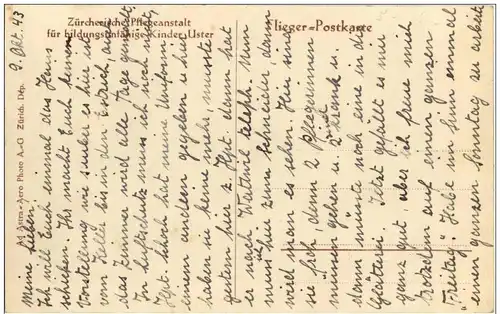 Zürcherische Pflegeanstalt
für bildungsunfähige Kinder, Uster
Flieger-Postkarte
Ad Astra-Aero Photo A.-G. Zürich. Dep.
9. Okt. 43
Meine Lieben!
Ich will Euch einmal das Haus
schicken. Ihr macht Euch keine
Vorstellung wie sauber es hier ist
vom Keller bis in den Estrich, auch
das Zimmer wird alle Tage gemacht.
In Luftschutz muss ich noch nicht,
Hptl. hat meine Uniform
einem andern gegeben u. hier
haben sie keine mehr, musste
gestern hier z. Hptl. dann hat
er nach Wattwil teleph. nun
muss ich hier zum Schneider, dann
wird man es sehen. Hier sind
sie froh denn 2 Pflegerinnen
müssen gehen u. 2 sind krank u.
dann müsste noch eine in die
Gläterei. Jetzt gefällt es mir
ganz gut aber ich freue mich
trotzdem auf einen ganzen
"Freitag". Habe im Sinn einmal
einen ganzen Sonntag zu arbeiten